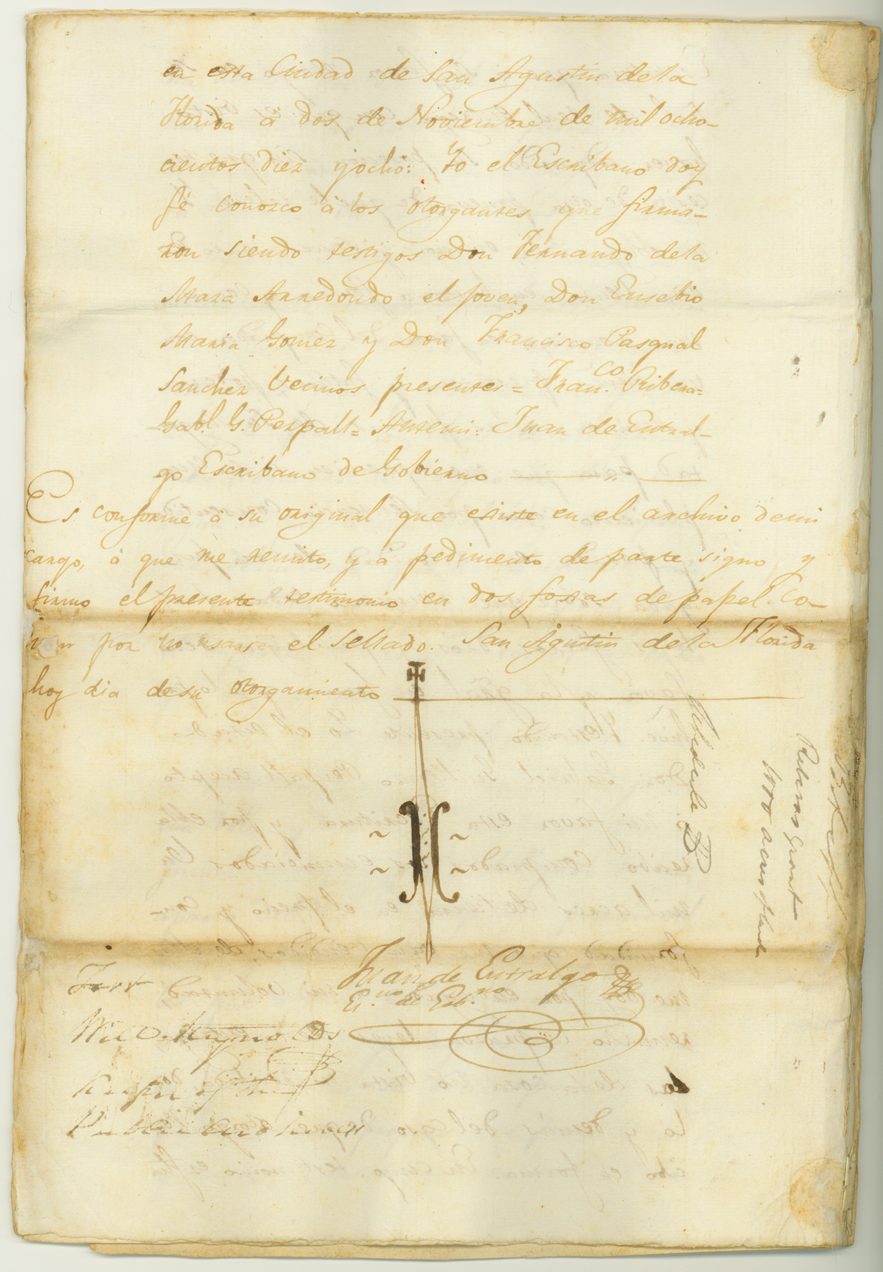 en esta Ciudad de San Agustin dela
Florida â dos de Noviembre de mil ocho-
cientos diez yocho: Yo el Escribano doy
fé conozco â los otorgantes que firma-
ron siendo testigos Don Fernando dela
Maza Arredondo el joven, Don Eusebio
Maria Gomez y Don Francisco Pasqual
Sanchez Vecinos presentes = Fran.co Ribera=
Gabl. G. Perpall= Antemi: Juan de Entral-
go Escribano de Gobierno
Es conforme â su original que existe en el archivo demi
cargo, â que me remito, y â pedimento de parte signo y
firmo el presente testimonio en dos foxas de papel co-
mun por no usarse el sellado. San Agustin de la Florida
hoy dia de su otorgamiento
Juan de Entralgo
Es.no de Gob.no
Test
Will. Reynolds
Keeper of the
Public Archives
Schedule B
Riberas Grant
1000 acres of land